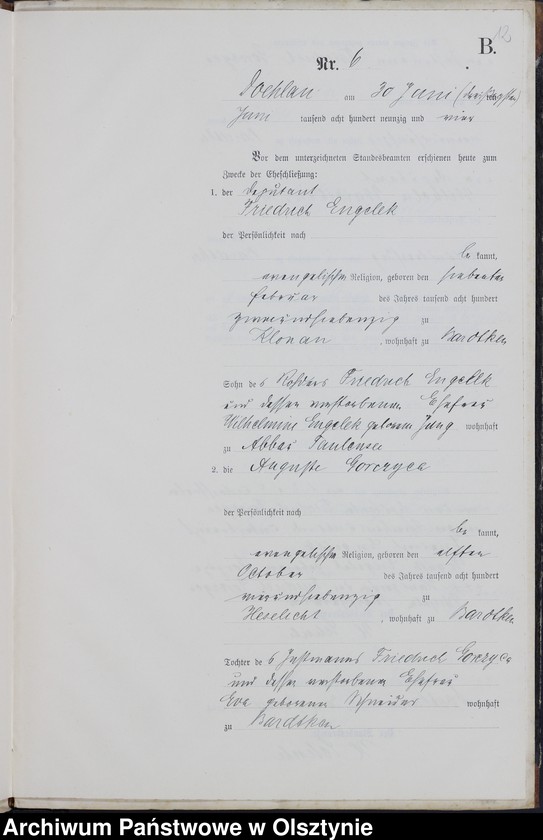 12
B.
Nr. 6
Doehlau am 30 Juni (dreißigsten)
Juni tausend acht hundert neunzig und vier
Vor dem unterzeichneten Standesbeamten erschienen heute zum
Zwecke der Eheschließung:
1. der Deputant
Friedrich Engelek
der Persönlichkeit nach
be kannt,
evangelischer Religion, geboren den siebenten
Februar des Jahres tausend acht hundert
zweiundsiebenzig zu
Klonau , wohnhaft zu Bardtken
Sohn des Friedrich Engelek
und dessen verstorbenen Ehefrau
Wilhelmine Engelek geborene Jung wohnhaft
zu Abbau Faulensee
2. die Auguste Gorczyca
der Persönlichkeit nach
be kannt,
evangelischer Religion, geboren den elften
October des Jahres tausend acht hundert
vierundsiebenzig zu
Heselicht , wohnhaft zu Bardtken
Tochter des Instmanns Friedrich Gorczyca
und dessen verstorbenen Ehefrau
Eva geborenen Schneider wohnhaft
zu Bardtken
Archiwum Państwowe w Olsztynie